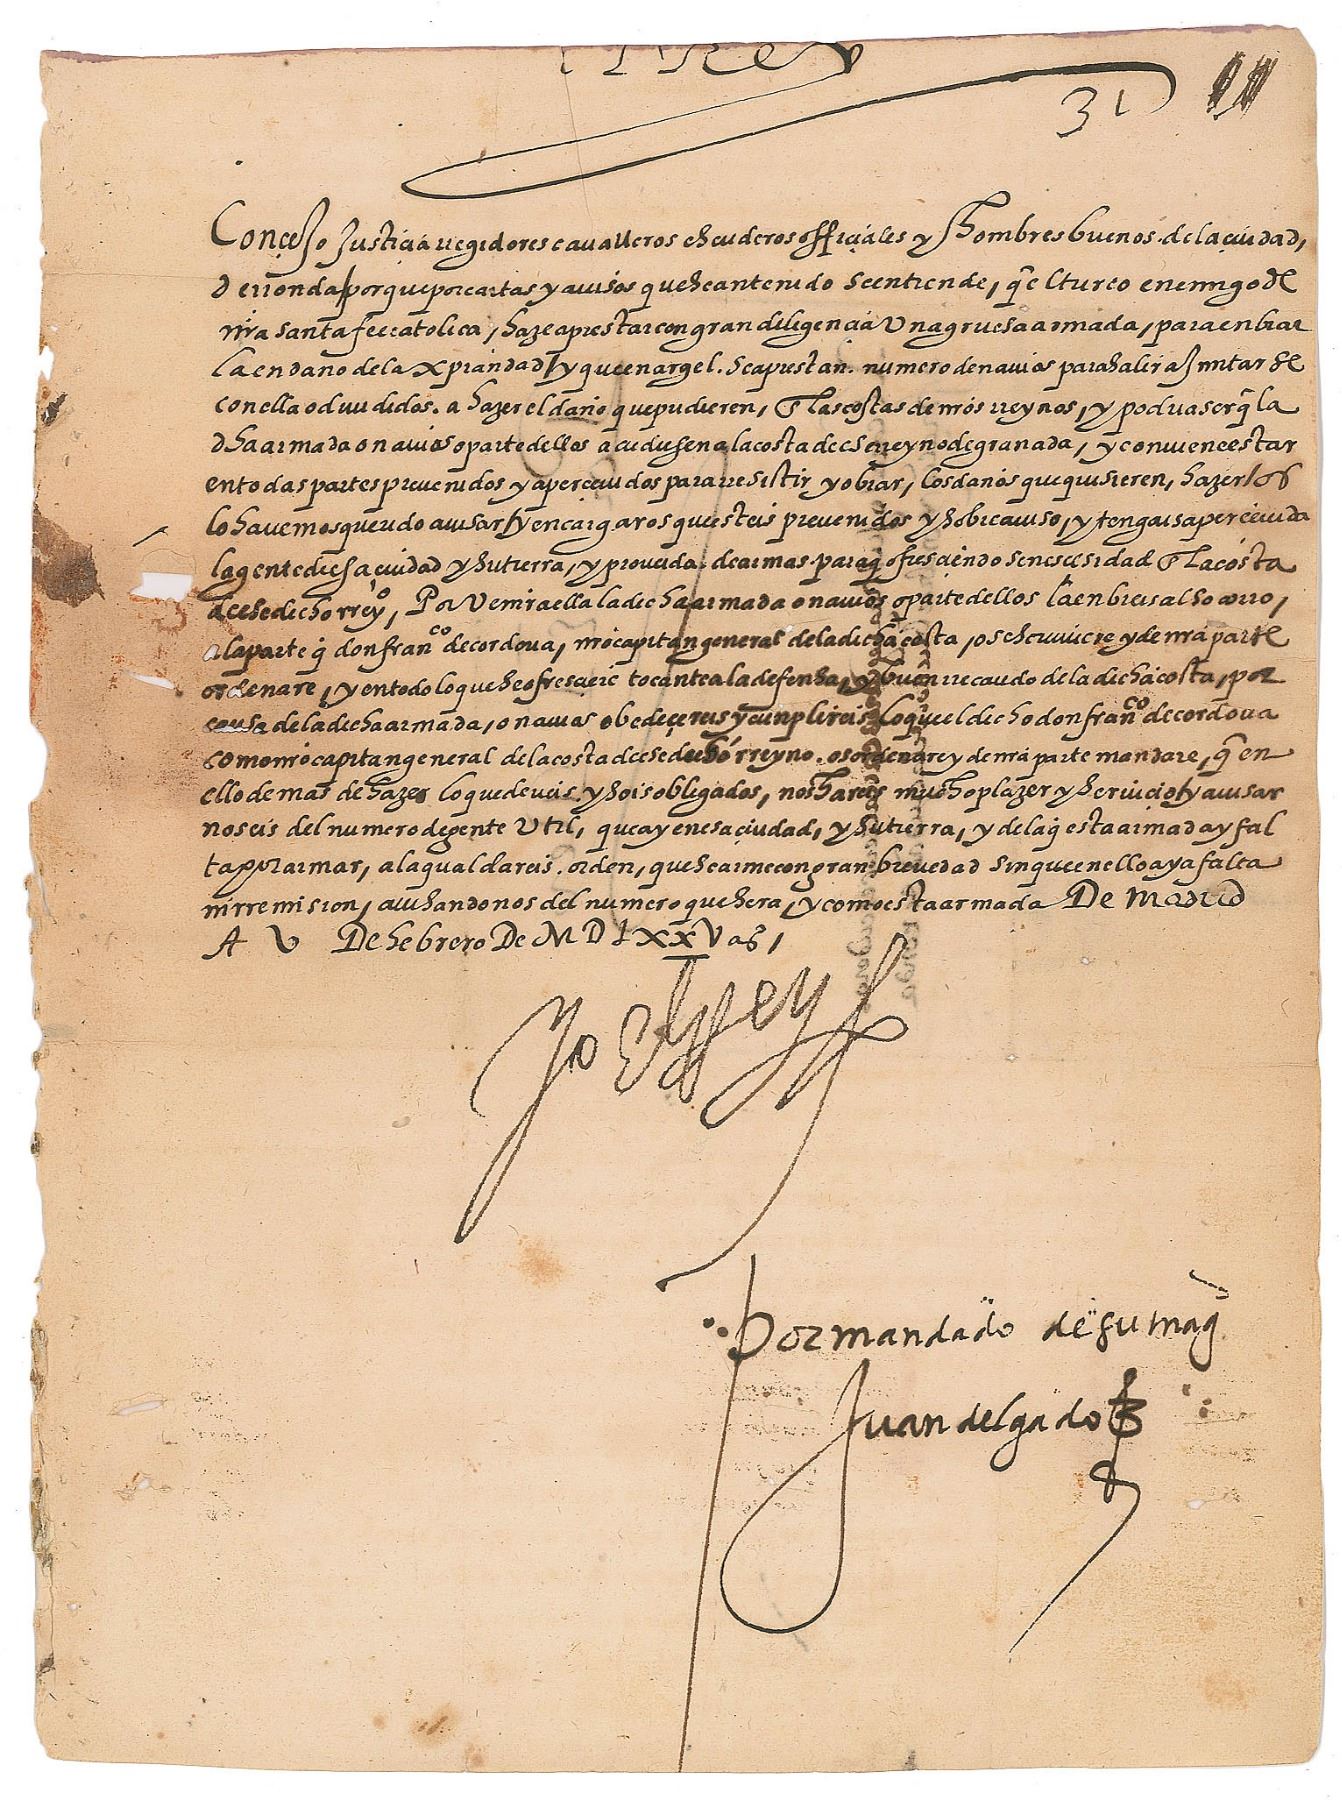 El Rey
31
Concejo Justicia rregidores cavalleros escuderos officiales y hombres buenos de la ciudad,
de rronda / porque por cartas y avisos que se an tenido se entiende, q̃ el turco enemigo de
nr̃a santa fee catolica, haze aprestar con gran diligencia una gruesa armada, para enbiar
la en daño de la xpiandad / y que en argel. se aprestan. numero de navios para salir a Juntarse
con ella o divididos. a hazer el daño que pudieren, en las costas de nr̃os rreynos, y podria ser q̃ la
dha armada o navios o parte dellos acudiesen a la costa de ese rreyno de granada, y conviene estar
en todas partes prevenidos y aperceuidos para rresistir y obiar, los daños que quisieren, hazer / os
lo havemos querido avisar / y encargaros que esteis prevenidos y sobre aviso, y tengais aperceuida
la gente de esa ciudad y su tierra, y proveida. de armas para q̃ ofresciendose nescesidad en la costa
de ese dicho rreyo, Por venir a ella la dicha armada o navios o parte dellos la enbieis al socorro,
a la parte q̃ don franco de cordova, nr̃o capitan general de la dicha costa, os escriviere y de nr̃a parte
ordenare, y en todo lo que se ofresciere tocante a la defensa, y buen rrecaudo de la dicha costa, por
causa de la dicha armada, o navios obedecereis y cunplireis lo que el dicho don franco de cordova
como nr̃o capitan general de la costa de ese dicho rreyno. os ordenare y de nr̃a parte mandare, q̃ en
ello demas de hazer lo que deveis. y sois obligados, nos hareis mucho plazer y servicio / y avisar
nos eis del numero de gente util, que ay en esa ciudad, y su tierra, y de la q̃ esta armada y fal
ta por armar, a la qual dareis. orden, que se arme con gran brevedad sin que en ello aya falta
ni rremision, avisandonos del numero que sera, y como esta armada De Madrid
A V De hebrero De MDLXXV as,
Yo El Rey
Por mandado de su magd
Juan delgado